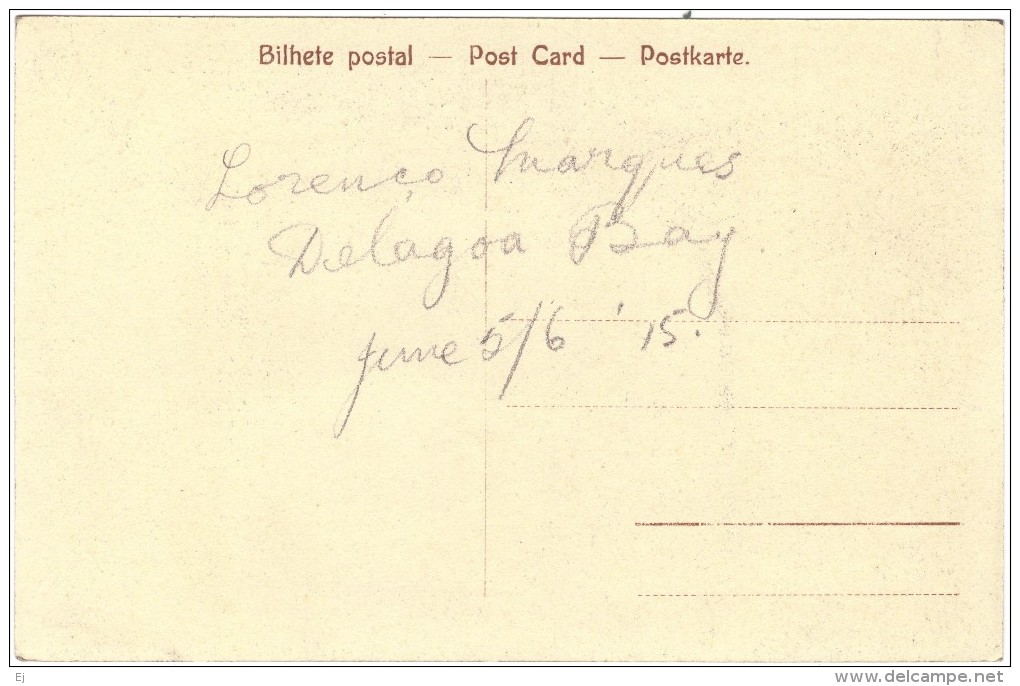 Bilhete postal — Post Card — Postkarte.
Lorenço Marques
Delagoa Bay.
June 5/6 '15.
Ej
www.delcampe.net